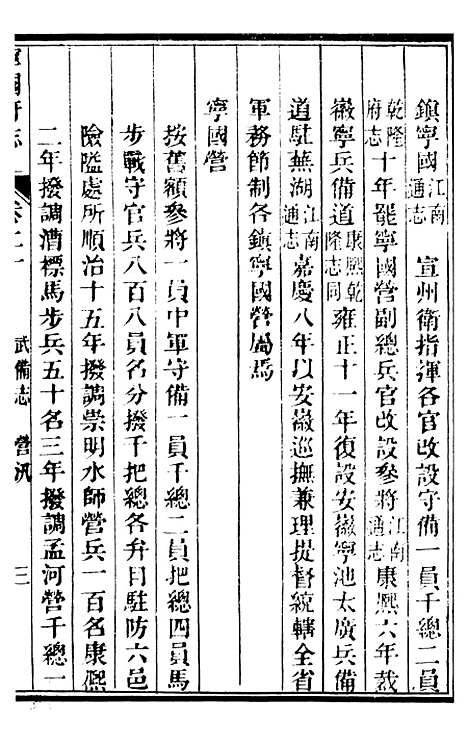 鎮寧國江南通志　宣州衛指揮各官改設守備一員千總二員
乾隆府志十年罷寧國營副總兵官改設參將江南通志康熙六年裁
徽寧兵備道康熙乾隆志同雍正十一年復設安徽寧池太廣兵備
道駐蕪湖江南通志嘉慶八年以安徽巡撫兼理提督統轄全省
軍務節制各鎮寧國營屬焉
寧國營
按舊額參將一員中軍守備一員千總二員把總四員馬
步戰守官兵八百八員名分撥千把總各弁目駐防六邑
險隘處所順治十五年撥調崇明水師營兵一百名康熙
二年撥調漕標馬步兵五十名三年撥調孟河營千總一
寧國府志　卷二十　武備志　營汛　三